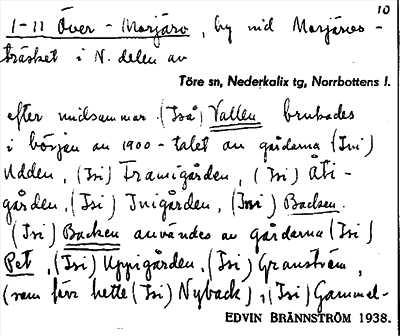 10
1-11 Över-Morjärv, by vid Morjärvs-
träsket i N. delen av
Töre sn, Nederkalix tg, Norrbottens l.
efter midsommar. (Iså) Vallen brukades
i början av 1900-talet av gårdarna (Ini)
Udden, (Isi) Framigården, (Isi) Åti-
gården, (Isi) Inigården, (Ini) Backen.
(Isi) Backen användes av gårdarna (Isi)
Pet, (Isi) Uppigården, (Isi) Granström,
(som förr hette (Isi) Nyback), (Isi) Gammel-
EDVIN BRÄNNSTRÖM 1938.